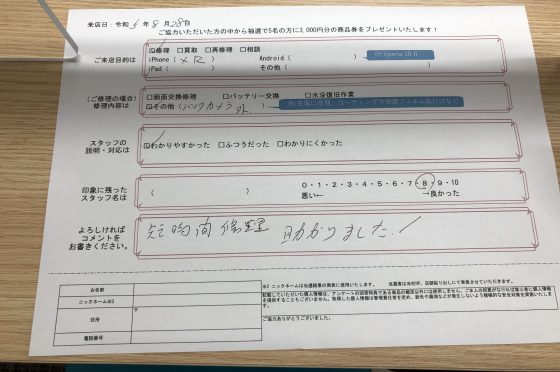 来店日：令和 5 年 8 月 28 日
ご協力いただいた方の中から抽選で5名の方に3,000円分の商品券をプレゼントいたします！
ご来店目的は
☑修理 □買取 □再修理 □相談
iPhone（ XR ） Android（ ） 例:Xperia 10 Ⅱ
iPad（ ） その他（ ）
（ご修理の場合）
修理内容は
□画面交換修理 □バッテリー交換 □水没復旧作業
☑その他（バックカメラ ）
スタッフの
説明・対応は
☑わかりやすかった □ふつうだった □わかりにくかった
印象に残った
スタッフ名は
（ ）
0・1・2・3・4・5・6・7・8・9・10
悪い← →良かった
よろしければ
コメントを
お書きください。
短時間修理 助かりました！
お名前
ニックネーム※2
住所
〒
電話番号
※2 ニックネームは当選結果の発表に使用いたします。 当選者は当社HP、店頭貼り出しにて発表させていただきます。
ご協力ありがとうございました。